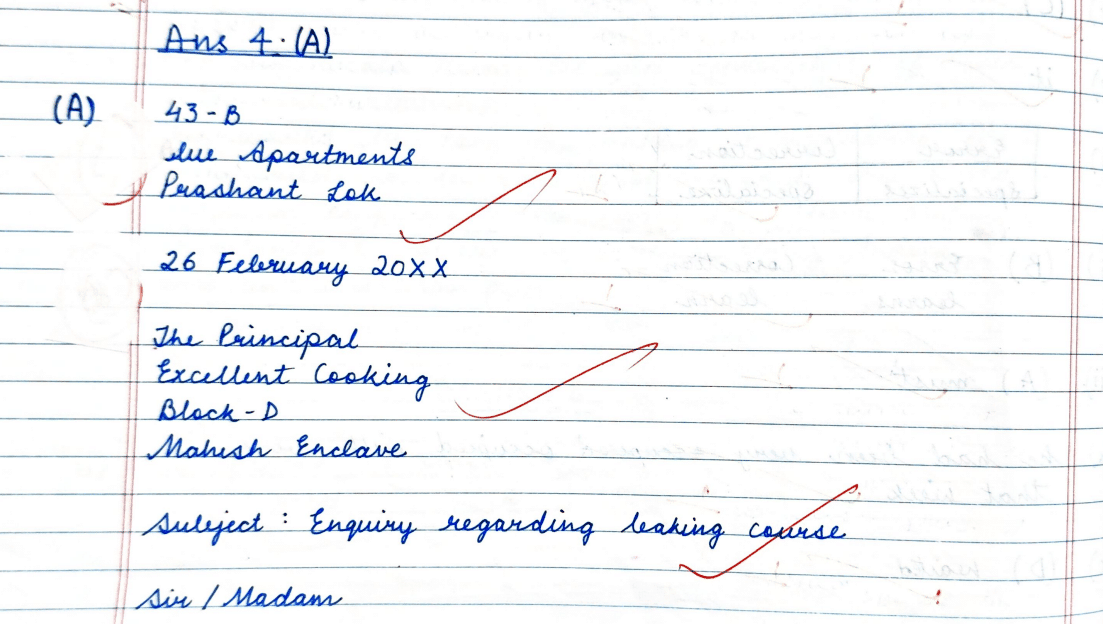 Ans 4. (A)
(A) 43 - B
Apartments
Prashant Lok
26 February 20XX
The Principal
Excellent Cooking
Block - D
Mahesh Enclave
Subject : Enquiry regarding baking course
Sir / Madam